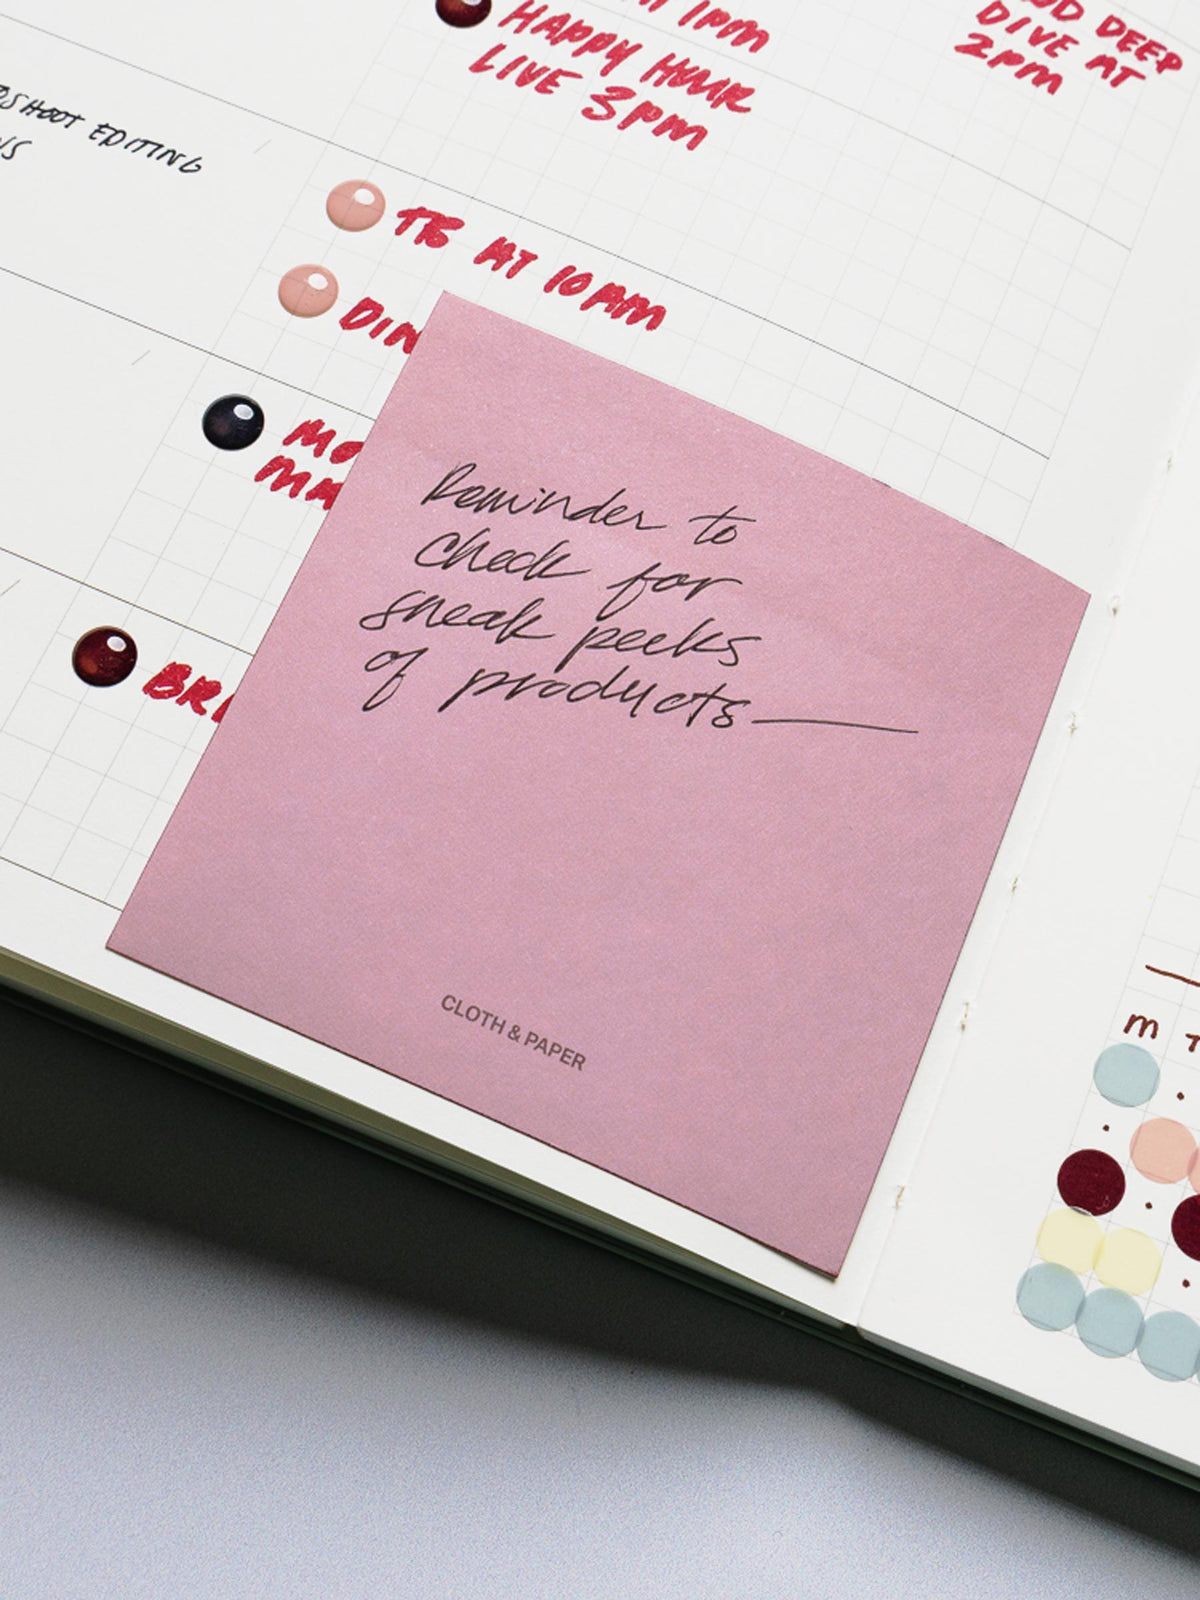 1PM
HAPPY HOUR
LIVE 3PM
DEEP
DIVE AT
2PM
EDITING
TB AT 10 AM
Reminder to
check for
sneak peeks
of products
CLOTH & PAPER
M T